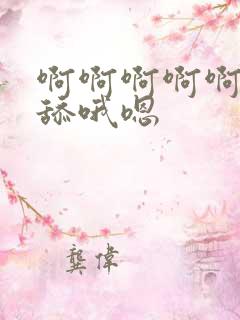 啊啊啊啊啊
舔哦嗯
龚伟